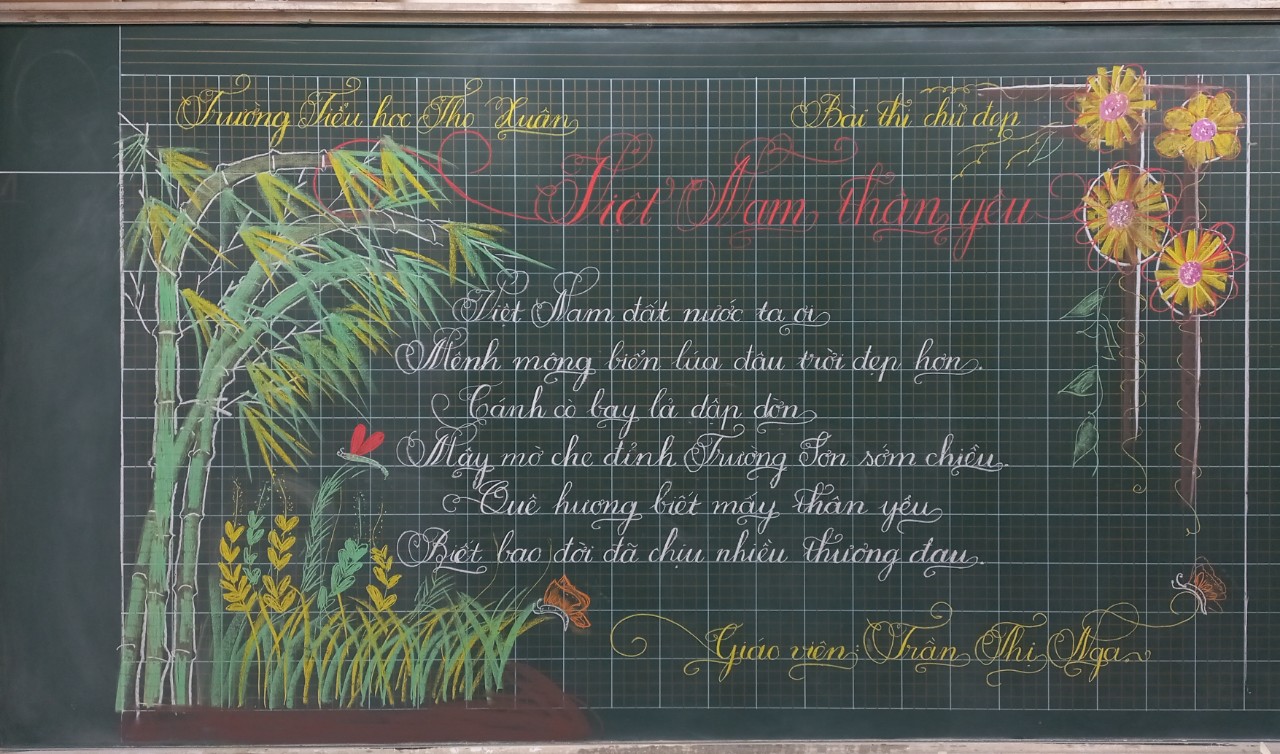 Trường Tiểu học Thọ Xuân
Bài thi chữ đẹp
Việt Nam thân yêu
Việt Nam đất nước ta ơi
Mênh mông biển lúa đâu trời đẹp hơn.
Cánh cò bay lả dập dờn
Mây mờ che đỉnh Trường Sơn sớm chiều.
Quê hương biết mấy thân yêu
Biết bao đời đã chịu nhiều thương đau.
Giáo viên: Trần Thị Nga